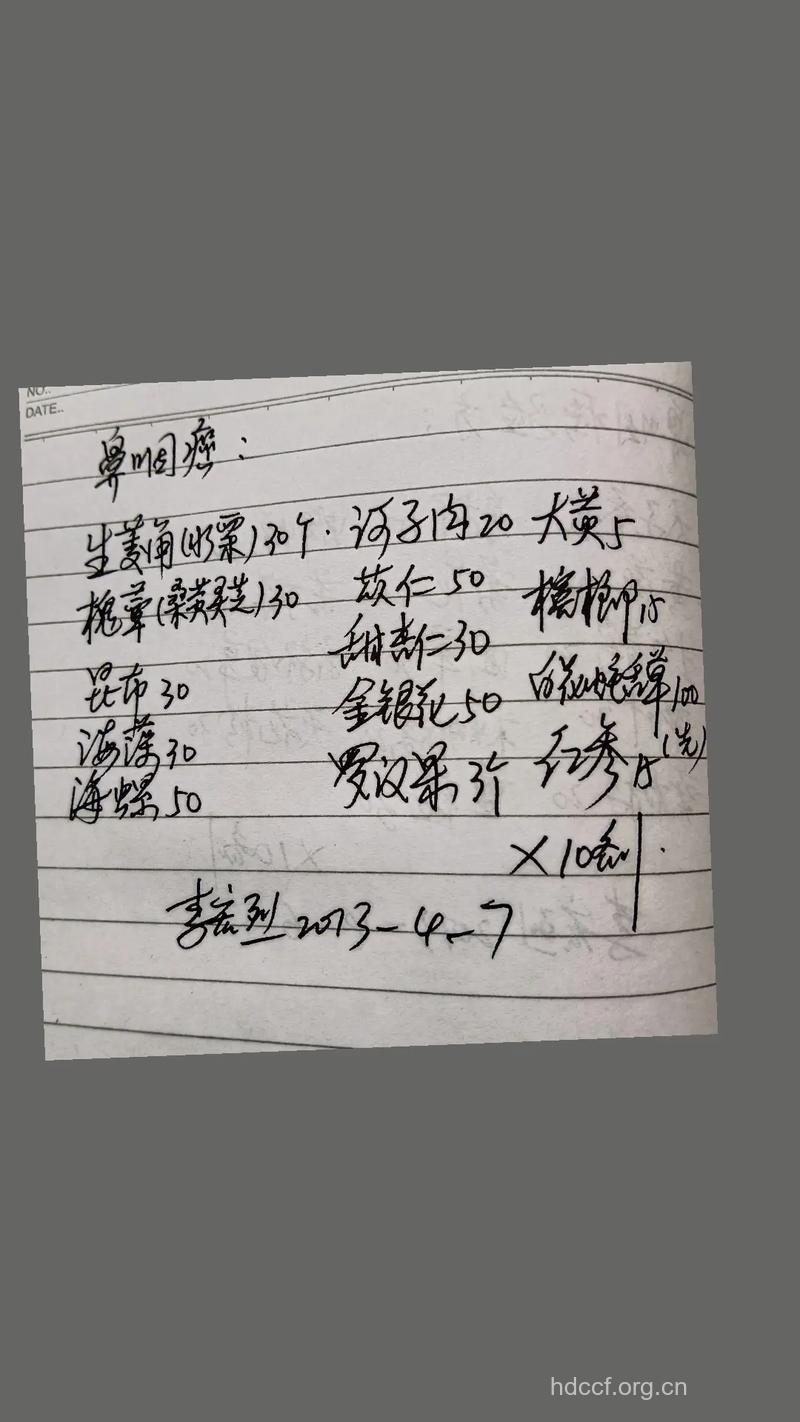 NO..
DATE..
鼻咽癌：
生菱角(水栗)30个. 诃子肉20 大黄5
槐蕈(桑黄灵芝)30 苡仁50 槟榔15
昆布30 甜杏仁30 白花蛇舌草100
海藻30 金银花50 红参15(先)
海螺50 罗汉果3个
×10剂.
李宏烈 2013-4-7
hdccf.org.cn